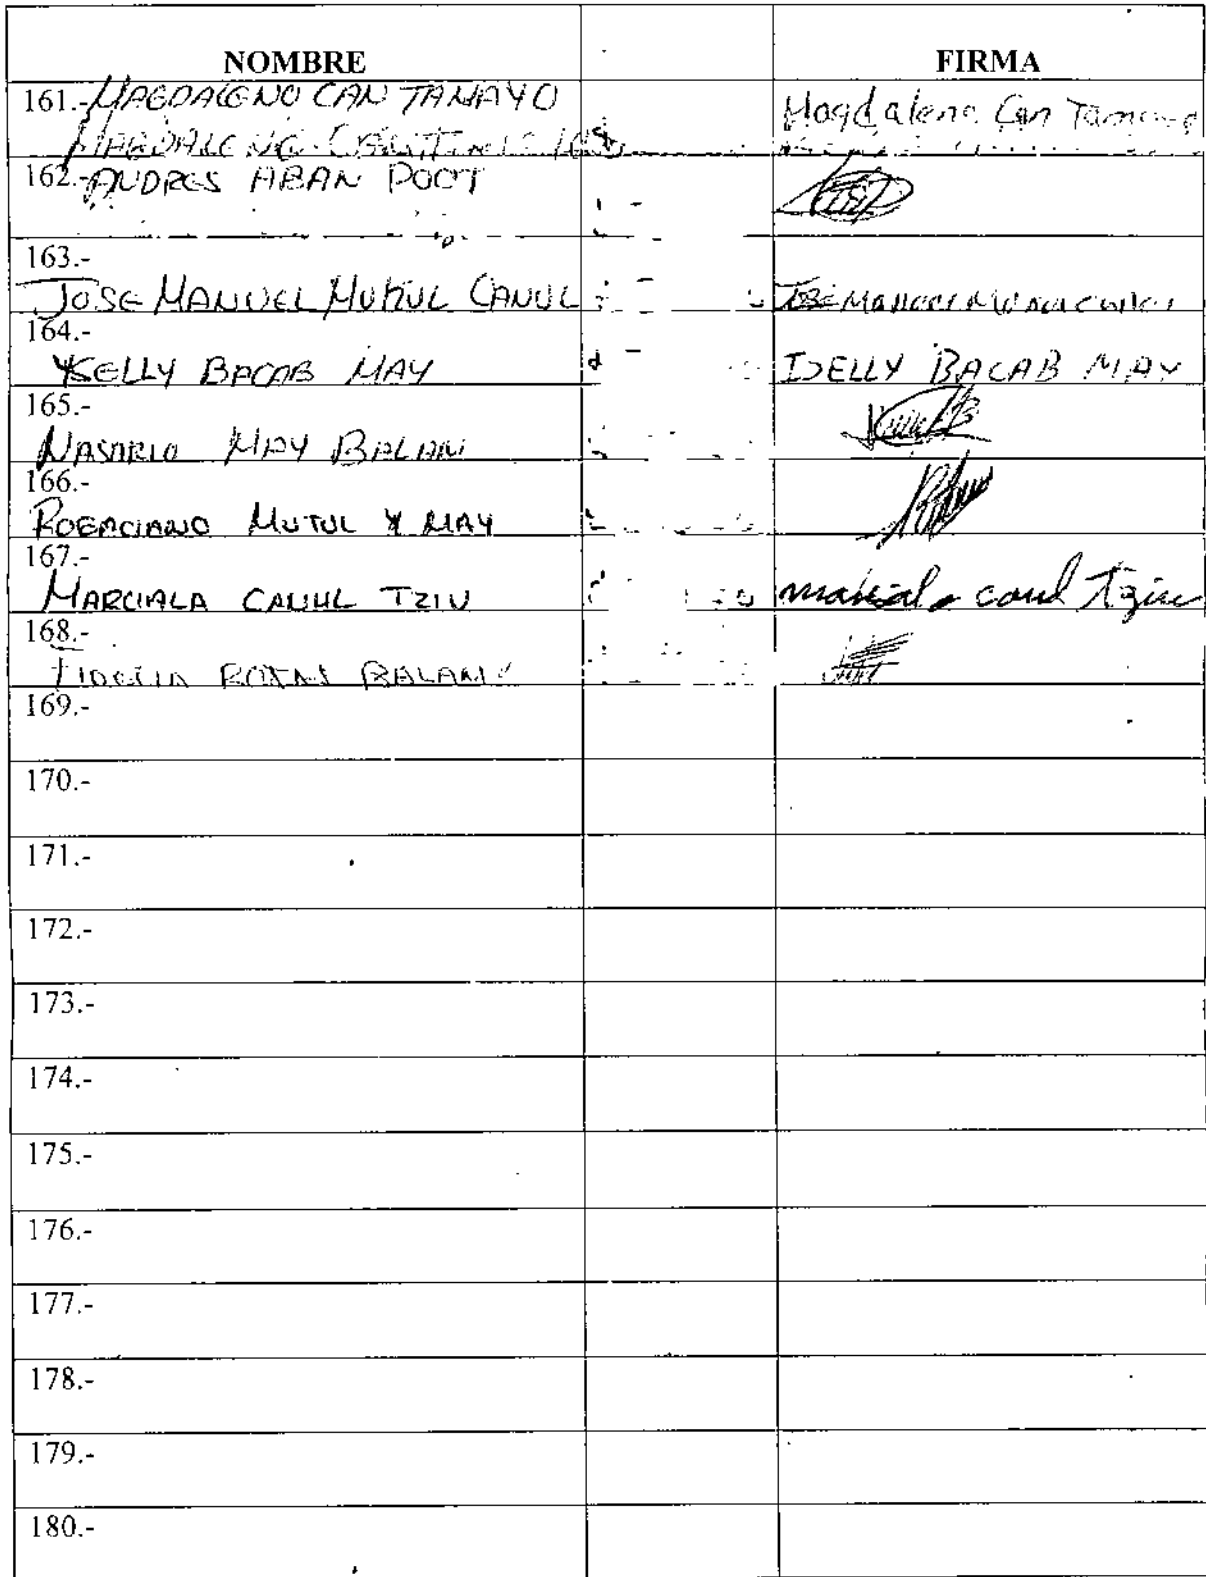 NOMBRE FIRMA
161.- MAGDALENO CAN TAMAYO Magdaleno Can
162.- ANDRES ABAN POOT
163.-
JOSE MANUEL MUKUL CANUL
164.-
KELLY BACAB MAY DELLY BACAB MAY
165.-
NASARIO MAY BALAM
166.-
ROGACIANO MUTUL Y MAY
167.-
MARCIALA CANUL TZIU canul Tziu
168.-
BALAM
169.-
170.-
171.-
172.-
173.-
174.-
175.-
176.-
177.-
178.-
179.-
180.-